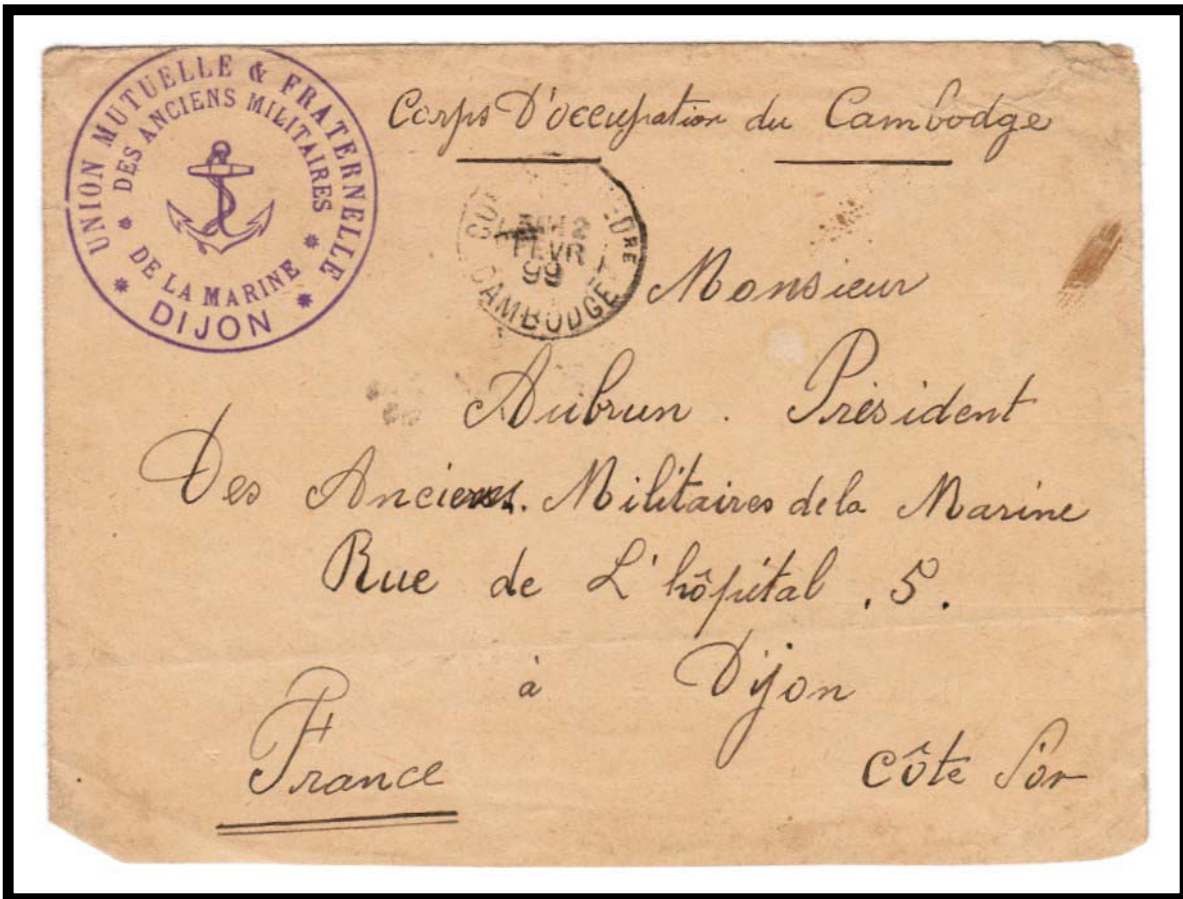 UNION MUTUELLE & FRATERNELLE
DES ANCIENS MILITAIRES
DE LA MARINE
DIJON
Corps D'occupation du Cambodge
2
FEVR
99
CAMBODGE
Monsieur
Aubrun . Président
Des Anciens. Militaires de la Marine
Rue de L'hôpital . 5.
à Dijon
France
Côte d'or